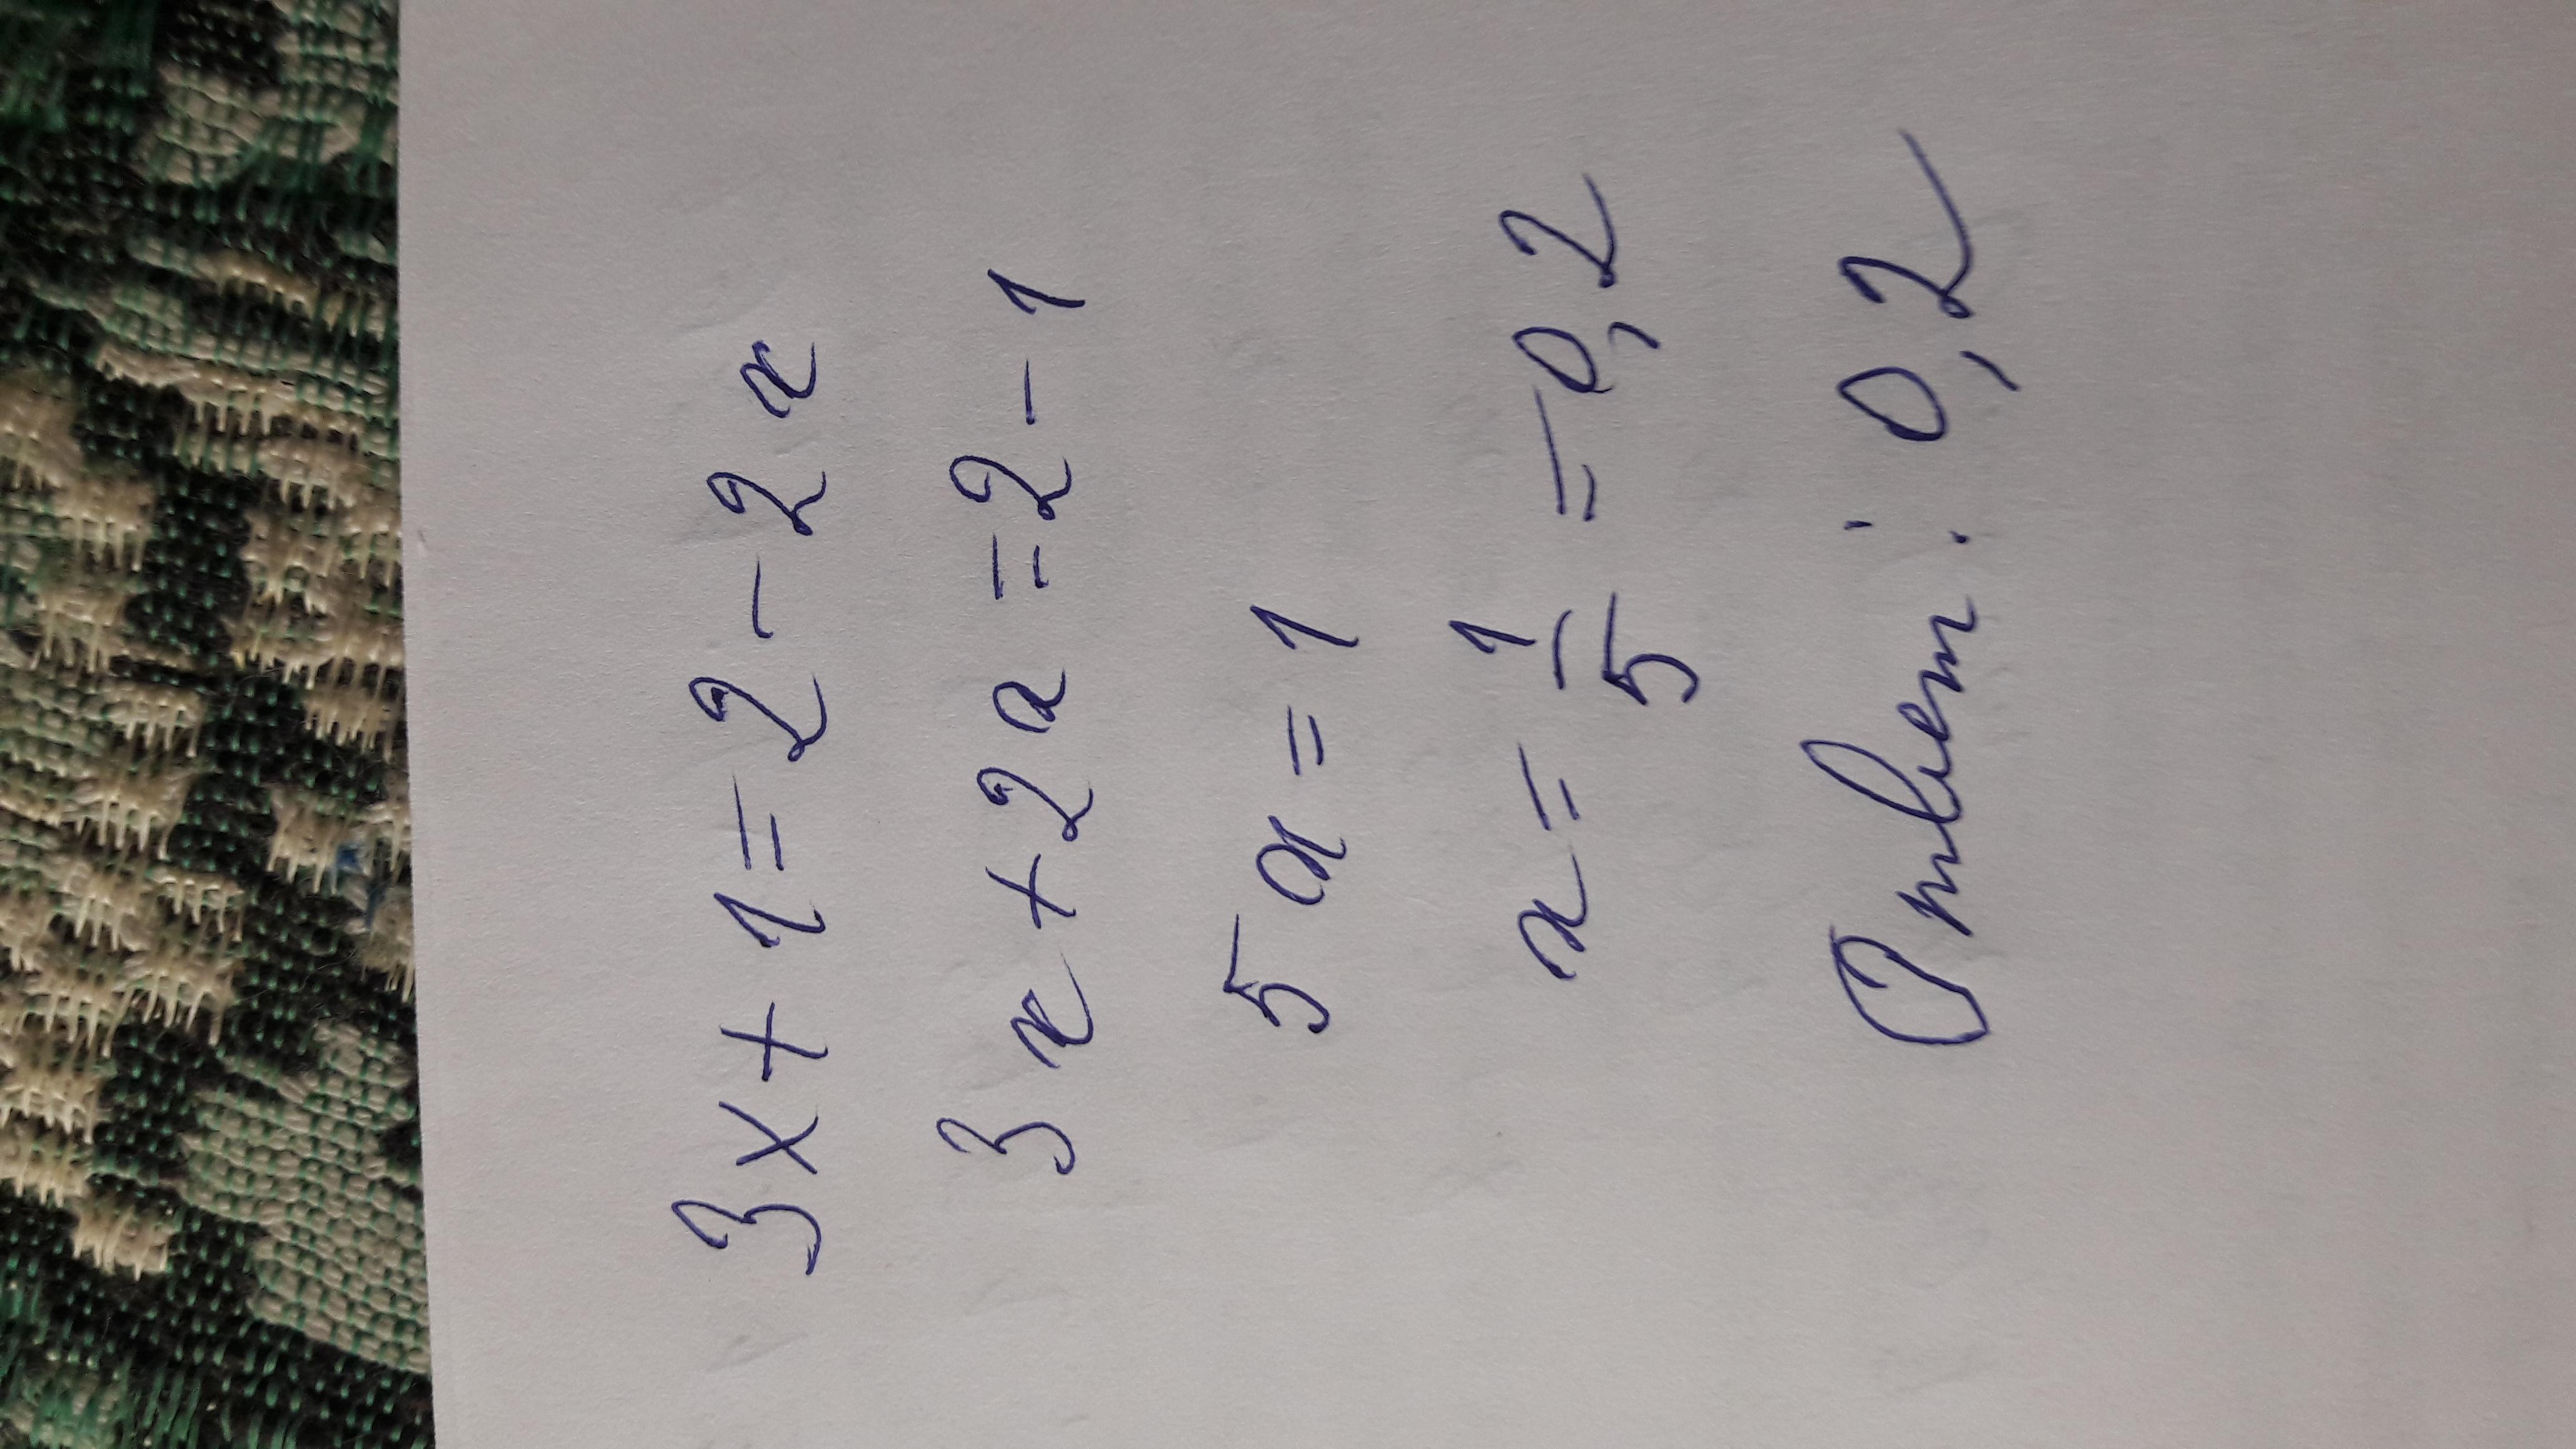 3x+1=2-2x
3x+2x=2-1
5x=1
x=1/5=0,2
Ответ: 0,2